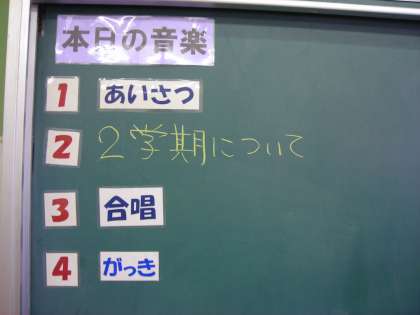 本日の音楽
1 あいさつ
2 2学期について
3 合唱
4 がっき